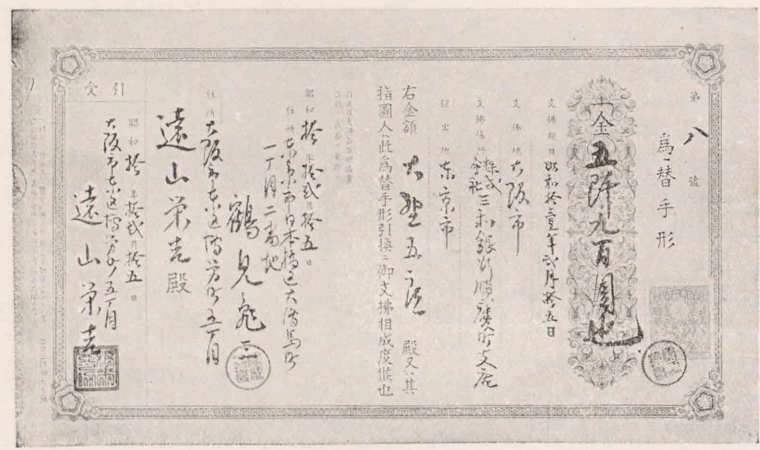 第八號
爲替手形
一金五阡九百圓也
支拂期日 昭和拾壹年弐月拾五日
支拂地 大阪市
支拂場所 株式会社三和銀行順慶町支店
振出地 東京市
右金額 殿又ハ其
指圖人ヘ此爲替手形引換ニ御支拂相成度候也
昭和拾年拾弐月拾五日
住所 東京市日本橋区大傳馬町
一丁目二番地
鶴見亀三
住所 大阪市東区博労町五丁目
遠山栄吉殿
引受
昭和拾年拾弐月拾五日
大阪市東区博労町五丁目
遠山栄吉